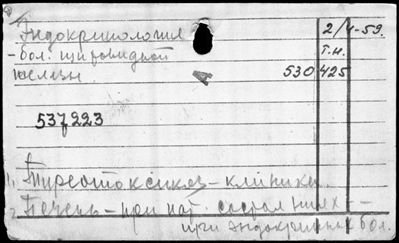 Эндокринология 2/V-59.
- бол. щитовидной т.н.
железы 530 425
537223
1. Тиреотоксикоз - клиника.
2. Печень - при пат. состояниях -
при эндокринных бол.